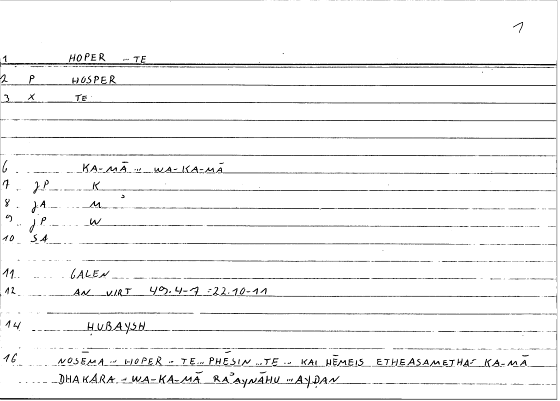 1
1 HOPER - TE
2 P HOSPER
3 X TE
6 KA-MĀ .. WA-KA-MĀ
7 JP K
8 JA M ʾ
9 JP W
10 SA
11 GALEN
12 AN VIRT 49.4-7 = 22.10-11
14 HUBAYSH
16 NOSĒMA .. HOPER .. TE .. PHĒSIN .. TE .. KAI HĒMEIS ETHEASAMETHA = KA-MĀ
DHAKARA .. WA-KA-MĀ RAʾAYNĀHU .. AYḌAN